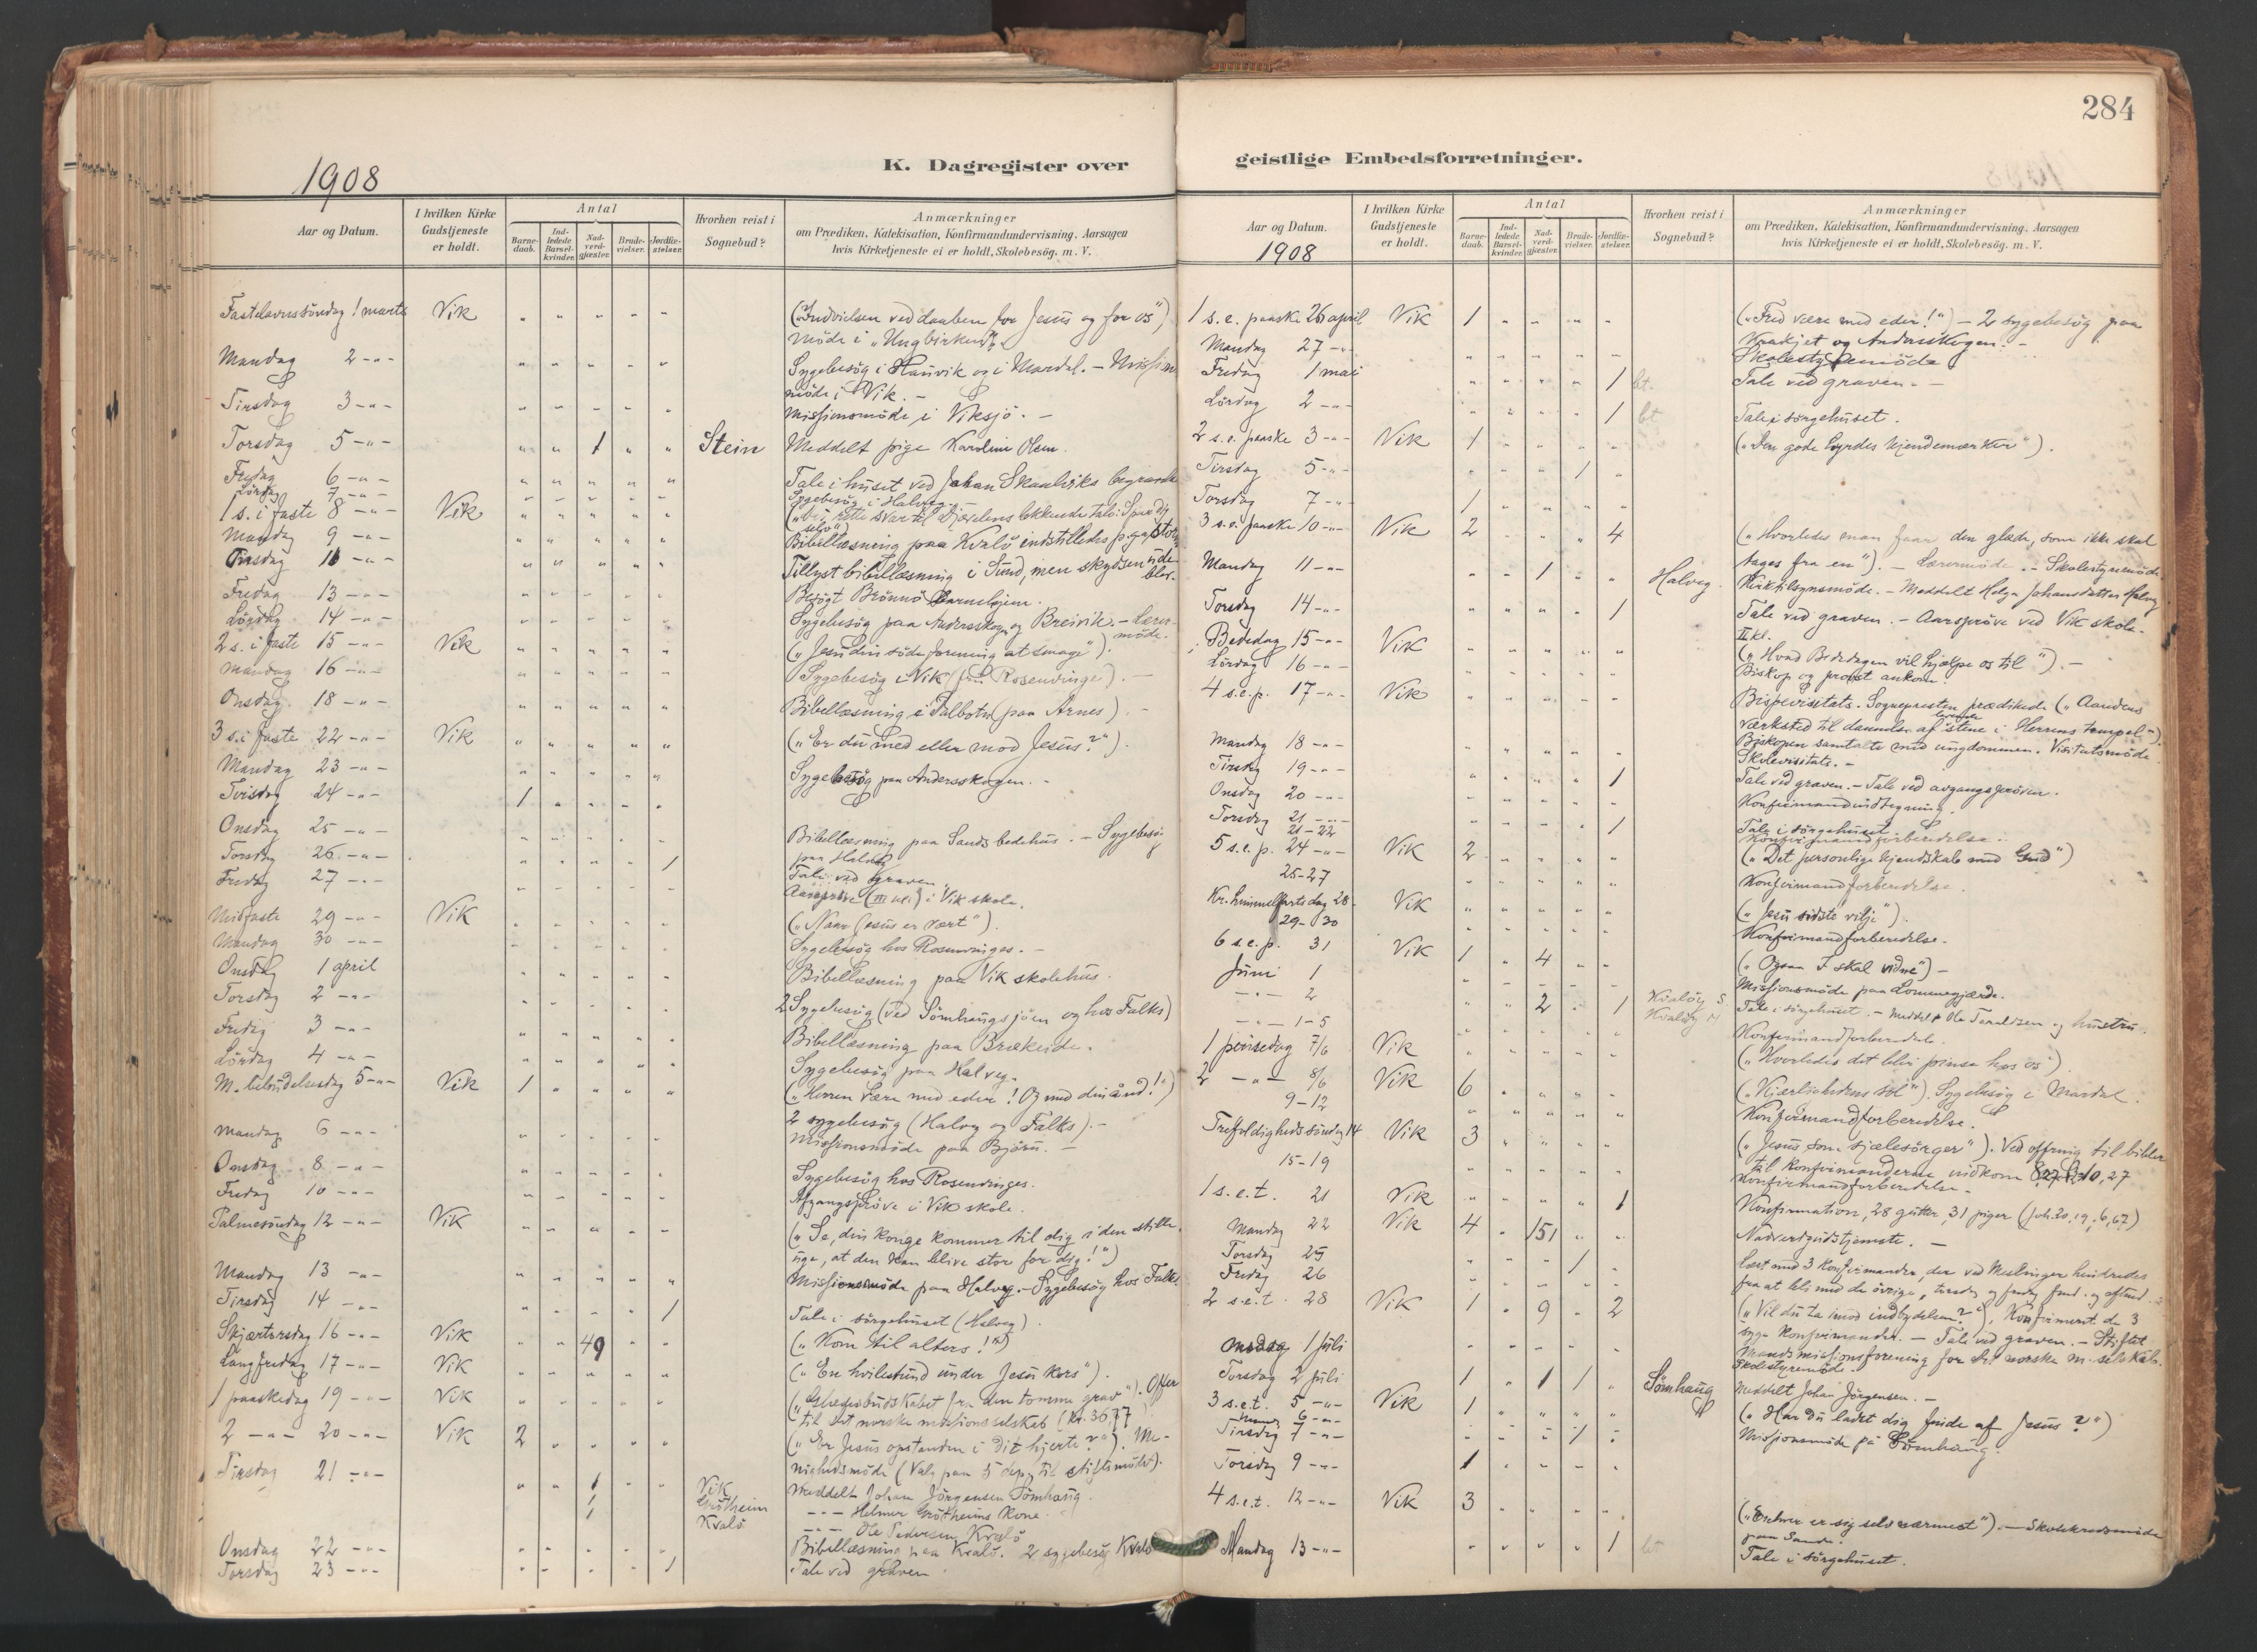 284
K. Dagregister over
1908
Aar og Datum.
I hvilken Kirke Gudstjeneste er holdt.
Antal
Barne-daab.
Ind-ledede Barsel-kvinder.
Nad-verd-gjæster.
Brude-vielser.
Jordfæ-stelser.
Hvorhen reist i Sognebud?
Anmærkninger
om Prædiken, Katekisation, Konfirmandundervisning, Aarsagen
hvis Kirketjeneste ei er holdt, Skolebesög, m. V.
Fastelavnssöndag 1 marts Vik " " " " " („Indvielsen ved daaben for Jesus og for os")
Möde i „Ungbirken".
Mandag 2 -"- " " " " " Sygebesög i Hauvik og i Mardal. - Missions
möde i Vik. -
Tirsdag 3 -"- " " " " " Missionsmöde i Viksjö. -
Torsdag 5 -"- " " 1 " " Stein Meddelt pige Karoline Olsen.
Fredag 6 -"- " " " " " Tale i huset ved Johan Skaalviks begravelse
Lördag 7 -"- " " " " " Sygebesög i Halveg. -
1 s. i faste 8 -"- Vik " " " " " („Det rette svar til djævelens lokkende tale: Spar dig
selv")
Mandag 9 -"- " " " " " Bibellæsning paa Kvalö indstilledes p. g. a. storm
Tirsdag 10 -"- " " " " " Tillyst bibellæsning i Sund, men skydsen ude-
blev.
Fredag 13 -"- " " " " " Besögt Brönnö Barnehjem.
Lördag 14 -"- " " " " " Sygebesög paa Andersskogen og Breivik. - Lærer-
möde.
2 s. i faste 15 -"- Vik " " " " " („Jesu din söde forening at smage").
Mandag 16 -"- Sygebesög i Vik (fru Rosenvinge). -
Onsdag 18 -"- " " " " " Bibellæsning i Talbotn (paa Arnes). -
3 s. i faste 22 -"- Vik " " " " " („Er du med eller mod Jesus?").
Mandag 23 -"- " " " " " Sygebesög paa Andersskogen. -
Tirsdag 24 -"- 1 " " " "
Onsdag 25 -"- " " " " " Bibellæsning paa Sands bedehus. - Sygebesög
paa Halveg
Torsdag 26 -"- " " " " 1 Tale ved graven
Fredag 27 -"- " " " " " Aarspröve (III kl.) i Vik skole.
Midfaste 29 -"- Vik („Naar Jesus er vært").
Mandag 30 -"- Sygebesög hos Rosenvinges. -
Onsdag 1 april " " " " " Bibellæsning paa Vik skolehus.
Torsdag 2 -"- 2 Sygebesög (ved Sömhaugsjöen og hos Falks)
Fredag 3 -"- " " " " " Bibellæsning paa Brækeide.
Lördag 4 -"- " " " " " Sygebesög paa Halveg.
M. bebudelsesdag 5 -"- Vik 1 " " " " („Herren være med eder! Og med din ånd!")
Mandag 6 -"- " " " " " 2 sygebesög (Halveg og Falks). -
Missionsmöde paa Björu. -
Onsdag 8 -"- " " " " " Sygebesög hos Rosenvinges.
Fredag 10 -"- " " " " " Afgangspröve i Vik skole.
Palmesöndag 12 -"- Vik " " " " " („Se, din konge kommer til dig i den stille
uge, at den kan blive stor for dig!")
Mandag 13 -"- " " " " " Missionsmöde paa Halveg. - Sygebesög hos Falks.
Tirsdag 14 -"- " " " " 1 Tale i sörgehuset (Halveg).
Skjærtorsdag 16 -"- Vik " " 49 " " („Kom til alters!")
Langfredag 17 -"- Vik " " " " " („En hvilestund under Jesu kors").
1 paaskedag 19 -"- Vik " " " " " („Glædesbudskabet fra den tomme grav"). Offer
til det norske missionsselskab (kr. 36 77)
2 -"- 20 -"- Vik 2 " " " " („Er Jesus opstanden i dit hjerte?"). Me-
nighedsmöde (Valg paa 5 dep. til stiftsmödet).
Tirsdag 21 -"- " " 1 " " Vik Meddelt Johan Jörgensen Sömhaug.
1 Grötheim -"- Helmer Grötheims kone
1 Kvalö -"- Ole Pedersen Kvalö
Onsdag 22 -"- " " " " " Bibellæsning paa Kvalö. 2 sygebesög Kvalö
Torsdag 23 -"- " " " " 1 Tale ved graven
geistlige Embedsforretninger.
Aar og Datum.
1908
I hvilken Kirke Gudstjeneste er holdt.
Antal
Barne-daab.
Ind-ledede Barsel-kvinder.
Nad-verd-gjæster.
Brude-vielser.
Jordfæ-stelser.
Hvorhen reist i Sognebud?
Anmærkninger
om Prædiken, Katekisation, Konfirmandundervisning, Aarsagen
hvis Kirketjeneste ei er holdt, Skolebesög, m. V.
1 s. e. paaske 26 april Vik 1 " " " " („Fred være med eder!") - 2 sygebesög paa
og Andersskogen. -
Mandag 27 -"- " " " " " Skolestyremöde
Fredag 1 mai " " " " 1 bt. Tale ved graven. -
Lördag 2 -"- " " " " 1 bt Tale i sörgehuset.
2 s. e. paaske 3 -"- Vik 1 " " " " („Den gode hyrdes kjendemærker").
Tirsdag 5 -"- " " " 1 "
Torsdag 7 -"- 1 " " " "
3 s. e. paaske 10 -"- Vik 2 " " " 4 („Hvorledes man faar den glæde, som ikke skal
tages fra en"). - Lærermöde. - Skolestyremöde
Mandag 11 -"- " " 1 " " Halveg. Kirketilsynsmöde. - Meddelt Helga Johansdatter Halveg
Torsdag 14 -"- " " " " 1 Tale ved graven. - Aarspröve ved Vik skole.
II kl.
Bededag 15 -"- Vik " " " " " („Hvad Bededagen vil hjælpe os til"). -
Lördag 16 -"- Biskop og provst ankom.
4 s. e. p. 17 -"- Vik " " " " " Bispevisitats. Sognepresten prædikede („Aandens
værksted til dannelse af levende stene i Herrens tempel").
Biskopen samtalte med ungdommen. Visitatsmöde.
Mandag 18 -"- " " " " " Skolevisitats. -
Tirsdag 19 -"- " " " " 1 Tale ved graven. - Tale ved avgangspröven.
Onsdag 20 -"- " " " " " Konfirmandindtegning.
Torsdag 21 -"- " " " " 1 Tale i sörgehuset
21-22 Konfirmandforberedelse.
5 s. e. p. 24 -"- Vik 2 " " " " („Det personlige kjendskab med Gud")
25-27 " " " " " Konfirmandforberedelse.
Kr. himmelfartsdag 28 - Vik " " " " " („Jesu sidste vilje").
29-30 " " " " " Konfirmandforberedelse.
6 s. e. p. 31 Vik 1 " 4 " " („Ogsaa I skal vidne") -
Juni 1 " " " " " Missionsmöde paa Lommegjærde.
-"- 2 " " 2 " 1 Kvalöy S. Kvalöy N Tale i sörgehuset. - Meddelt Ole Taraldsen og hustru.
-"- 1-5 " " " " " Konfirmandforberedelse.
1 pinsedag 7/6 Vik " " " " " („Hvorledes det blir pinse hos os")
2 -"- 8/6 Vik 6 " " " " („Kjærlighedens sol"). Sygebesög i Mardal.
9-12 " " " " " Konfirmandforberedelse.
Trefoldighedssöndag 14 Vik 3 " " " " („Jesus som sjælesörger"). Ved offring til bibler
til konfirmanderne indkom 10,27
15-19 " " " " " Konfirmandforberedelse.
1 s. e. t. 21 Vik " " " " 1 Konfirmation, 28 gutter, 31 piger (Joh. 20,19, 6,67)
Mandag 22 Vik 4 " 151 " " Nadverdgudstjeneste. -
Torsdag 25 " " " 1 " Læst med 3 konfirmander, der ved Meslinger hindredes
Fredag 26 " " " " " fra at bli med de övrige, torsdag og fredag formd. og eftmd.
2 s. e. t. 28 Vik 1 " 9 " 2 („Vil du ta mod indbydelsen?"). Konfirmert de 3
syge konfirmander. - Tale ved graven. - Stiftet
Mandsmissionsforening for det norske m.-selskab.
Onsdag 1 juli " " " " " Skolestyremöde.
Torsdag 2 juli 1 " 1 1 " Sömhaug Meddelt Johan Jörgensen. -
3 s. e. t. 5 -"- Vik 1 " " " " („Har du ladet dig finde af Jesus?")
Mand. 6 -"- Missionsmöde på Sömhaug.
Tirsdag 7 -"- " " " 1 "
Torsdag 9 -"- 1 " " " "
4 s. e. t. 12 -"- Vik 3 " " " " („Enhver er sig selv nærmest"). - Skolekredsmöde
paa Sande.
Mandag 13 -"- " " " " 1 bt Tale i sörgehuset.